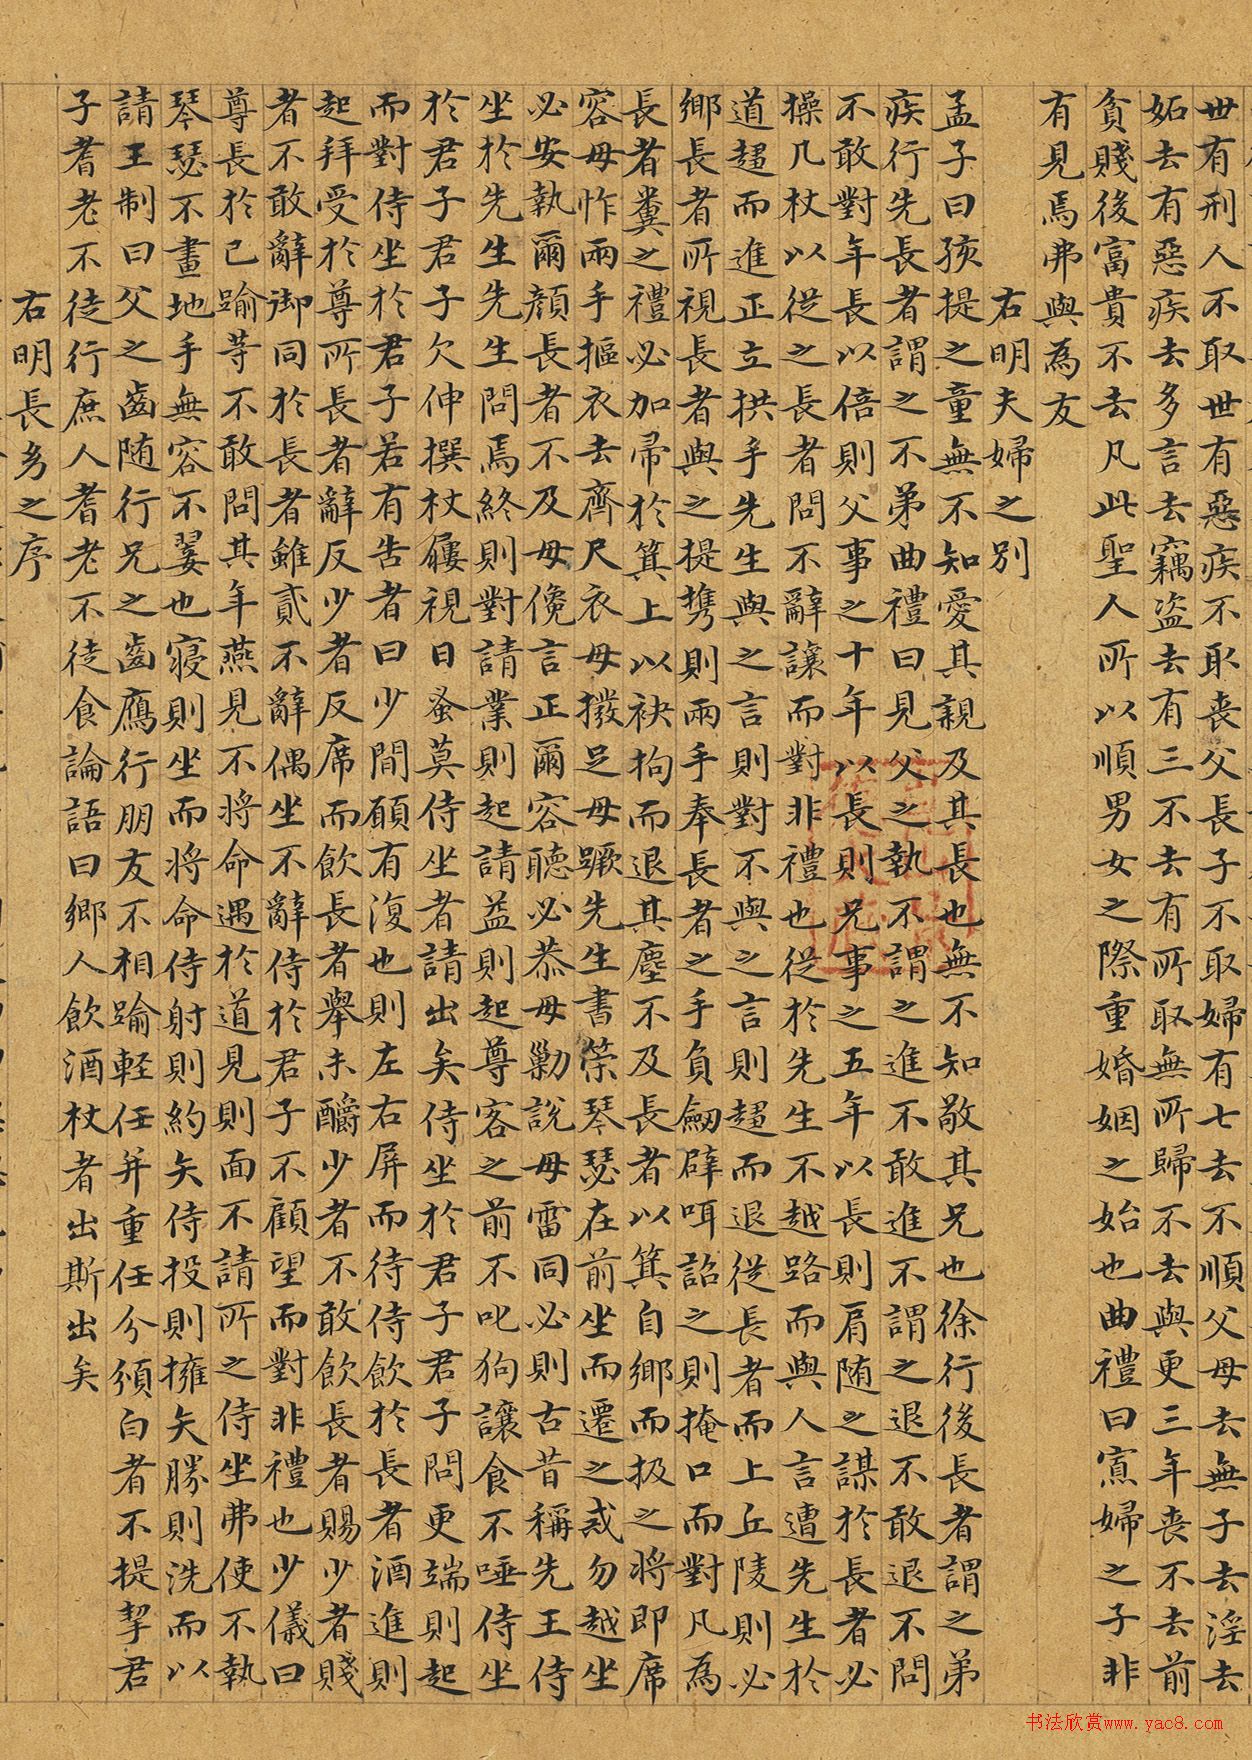 世有刑人不取世有惡疾不取喪父長子不取婦有七去不順父母去無子去淫去
妬去有惡疾去多言去竊盗去有三不去有所取無所歸不去與更三年喪不去前
貧賤後富貴不去凡此聖人所以順男女之際重婚姻之始也曲禮曰寡婦之子非
有見焉弗與為友
右明夫婦之別
孟子曰孩提之童無不知愛其親及其長也無不知敬其兄也徐行後長者謂之弟
疾行先長者謂之不弟曲禮曰見父之執不謂之進不敢進不謂之退不敢退不問
不敢對年長以倍則父事之十年以長則兄事之五年以長則肩随之謀於長者必
操几杖以從之長者問不辭讓而對非禮也從於先生不越路而與人言遭先生於
道趨而進正立拱手先生與之言則對不與之言則趨而退從長者而上丘陵則必
鄉長者所視長者與之提攜則兩手奉長者之手負劒辟咡詔之則掩口而對凡為
長者糞之禮必加帚於箕上以袂拘而退其塵不及長者以箕自鄉而扱之將即席
容毋怍兩手摳衣去齊尺衣毋撥足毋蹶先生書策琴瑟在前坐而遷之戒勿越坐
必安執爾顏長者不及毋儳言正爾容聽必恭毋勦說毋雷同必則古昔稱先王侍
坐於先生先生問焉終則對請業則起請益則起尊客之前不叱狗讓食不唾侍坐
於君子君子欠伸撰杖屨視日蚤莫侍坐者請出矣侍坐於君子君子問更端則起
而對侍坐於君子若有告者曰少間願有復也則左右屏而待侍飲於長者酒進則
起拜受於尊所長者辭反少者反席而飲長者舉未釂少者不敢飲長者賜少者賤
者不敢辭御同於長者雖貳不辭偶坐不辭侍於君子不顧望而對非禮也少儀曰
尊長於己踰等不敢問其年燕見不將命遇於道見則面不請所之侍坐弗使不執
琴瑟不畫地手無容不翣也寢則坐而將命侍射則約矢侍投則擁矢勝則洗而以
請王制曰父之齒随行兄之齒鴈行朋友不相踰輕任并重任分頒白者不提挈君
子耆老不徒行庶人耆老不徒食論語曰鄉人飲酒杖者出斯出矣
右明長幼之序
书法欣赏www.yac8.com